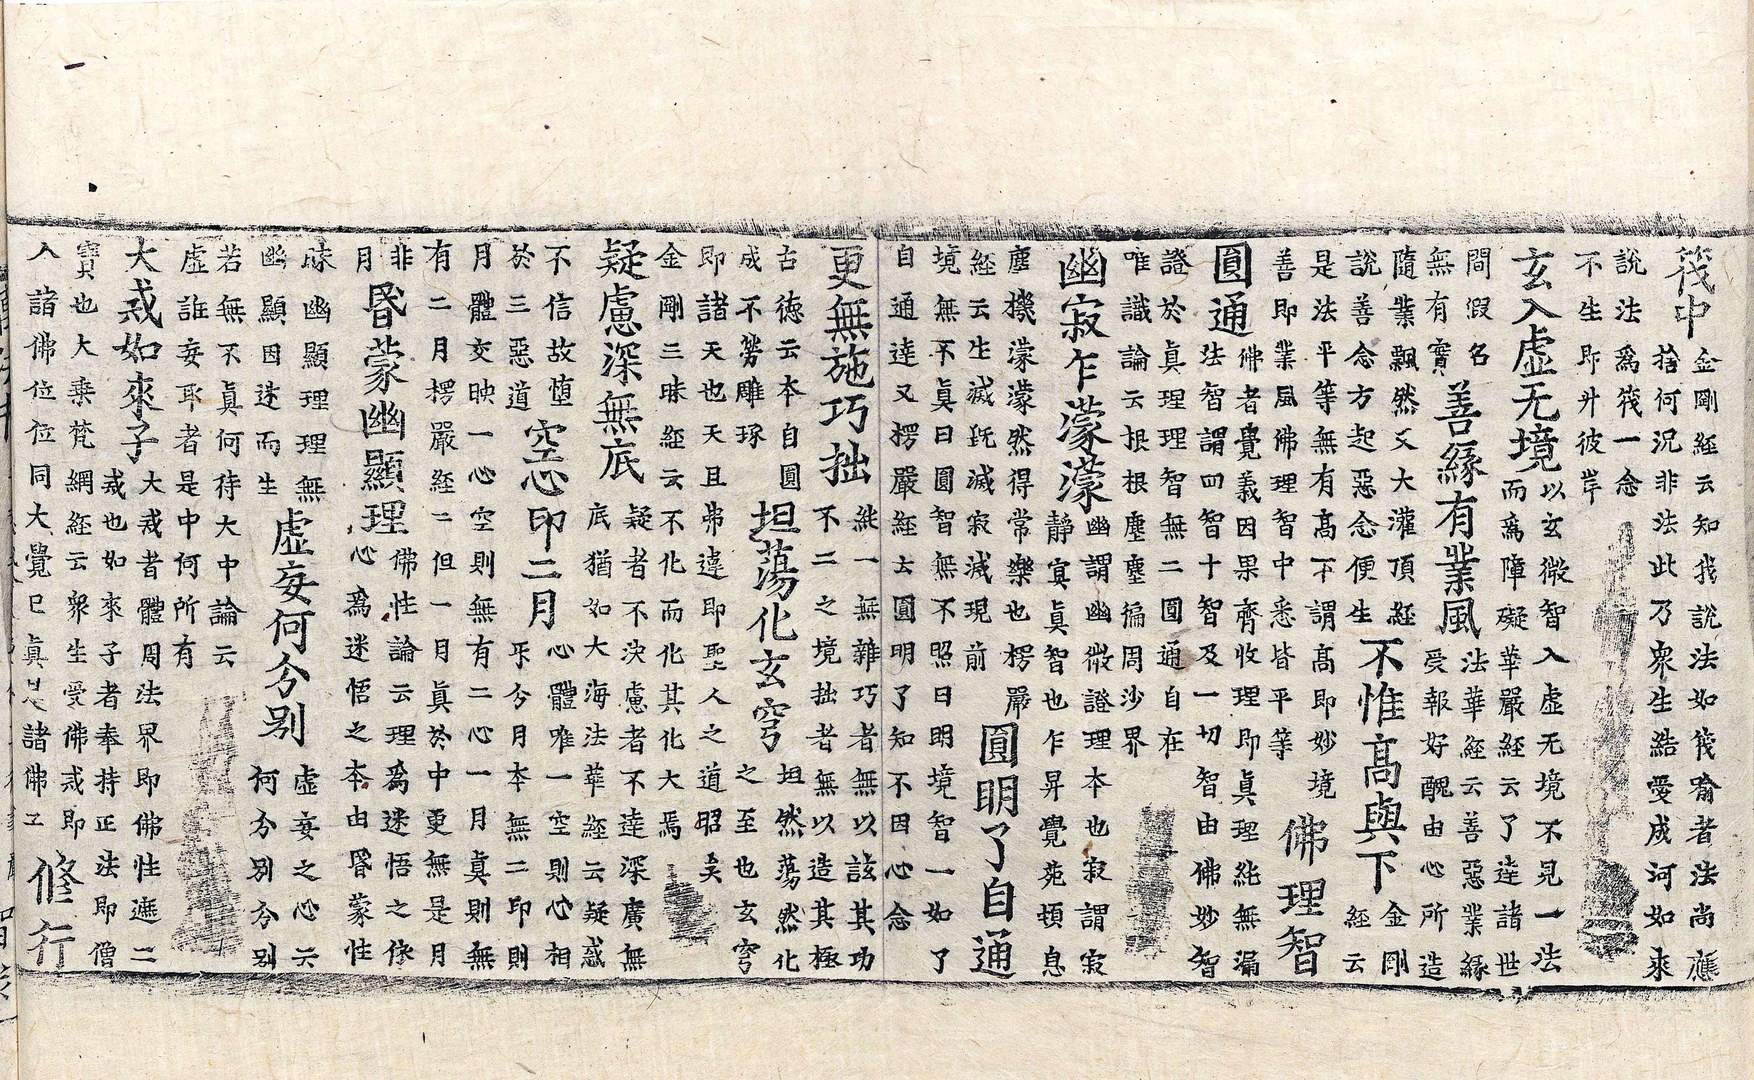 筏中
金剛經云知我說法如筏喻者法尚應
捨何況非法此乃衆生結愛成河如來
說法爲筏一念
不生即升彼岸
玄入虛无境
以玄微智入虛无境不見一法
而爲障礙華嚴經云了達諸世
間假名
無有實
善緣有業風
法華經云善惡業緣
受報好醜由心所造
隨業飄然又大灌頂經
說善念方起惡念便生
不惟高與下
金剛
經云
是法平等無有高下謂高即妙境
善即業風佛理智中悉皆平等
佛理智
圓通
佛者覺義因果齊收理即眞理純無漏
法智謂四智十智及一切智由佛妙智
證於眞理理智無二圓通自在
唯識論云根根塵塵徧周沙界
幽寂乍濛濛
幽謂幽微證理本也寂謂寂
靜寞眞智也乍昇覺苑頓息
塵機濛濛然得常樂也楞嚴
經云生滅旣滅寂滅現前
圓明了自通
境無不眞曰圓智無不照曰明境智一如了
自通達又楞嚴經云圓明了知不因心念
更無施巧拙
純一無雜巧者無以該其功
不二之境拙者無以造其極
古德云本自圓
成不勞雕琢
坦蕩化玄穹
坦然蕩然化
之至也玄穹
即諸天也天且弗違即聖人之道昭矣
金剛三昧經云不化而化其化大焉
疑慮深無底
疑者不決慮者不達深廣無
底猶如大海法華經云疑惑
不信故墮
於三惡道
空心印二月
心體唯一空則心相
不分月本無二印則
月體交映一心空則無有二心一月眞則無
有二月楞嚴經云但一月眞於中更無是月
非
月
昏蒙幽顯理
佛性論云理爲迷悟之依
心爲迷悟之本由昏蒙性
昧幽顯理理無
幽顯因迷而生
虛妄何分别
虛妄之心云
何分别分别
若無不眞何待大中論云
虛誰妄耶者是中何所有
大戒如來子
大戒者體周法界即佛性遮二
戒也如來子者奉持正法即僧
寶也大乘梵網經云衆生受佛戒即
入諸佛位位同大覺已眞是諸佛子
修行